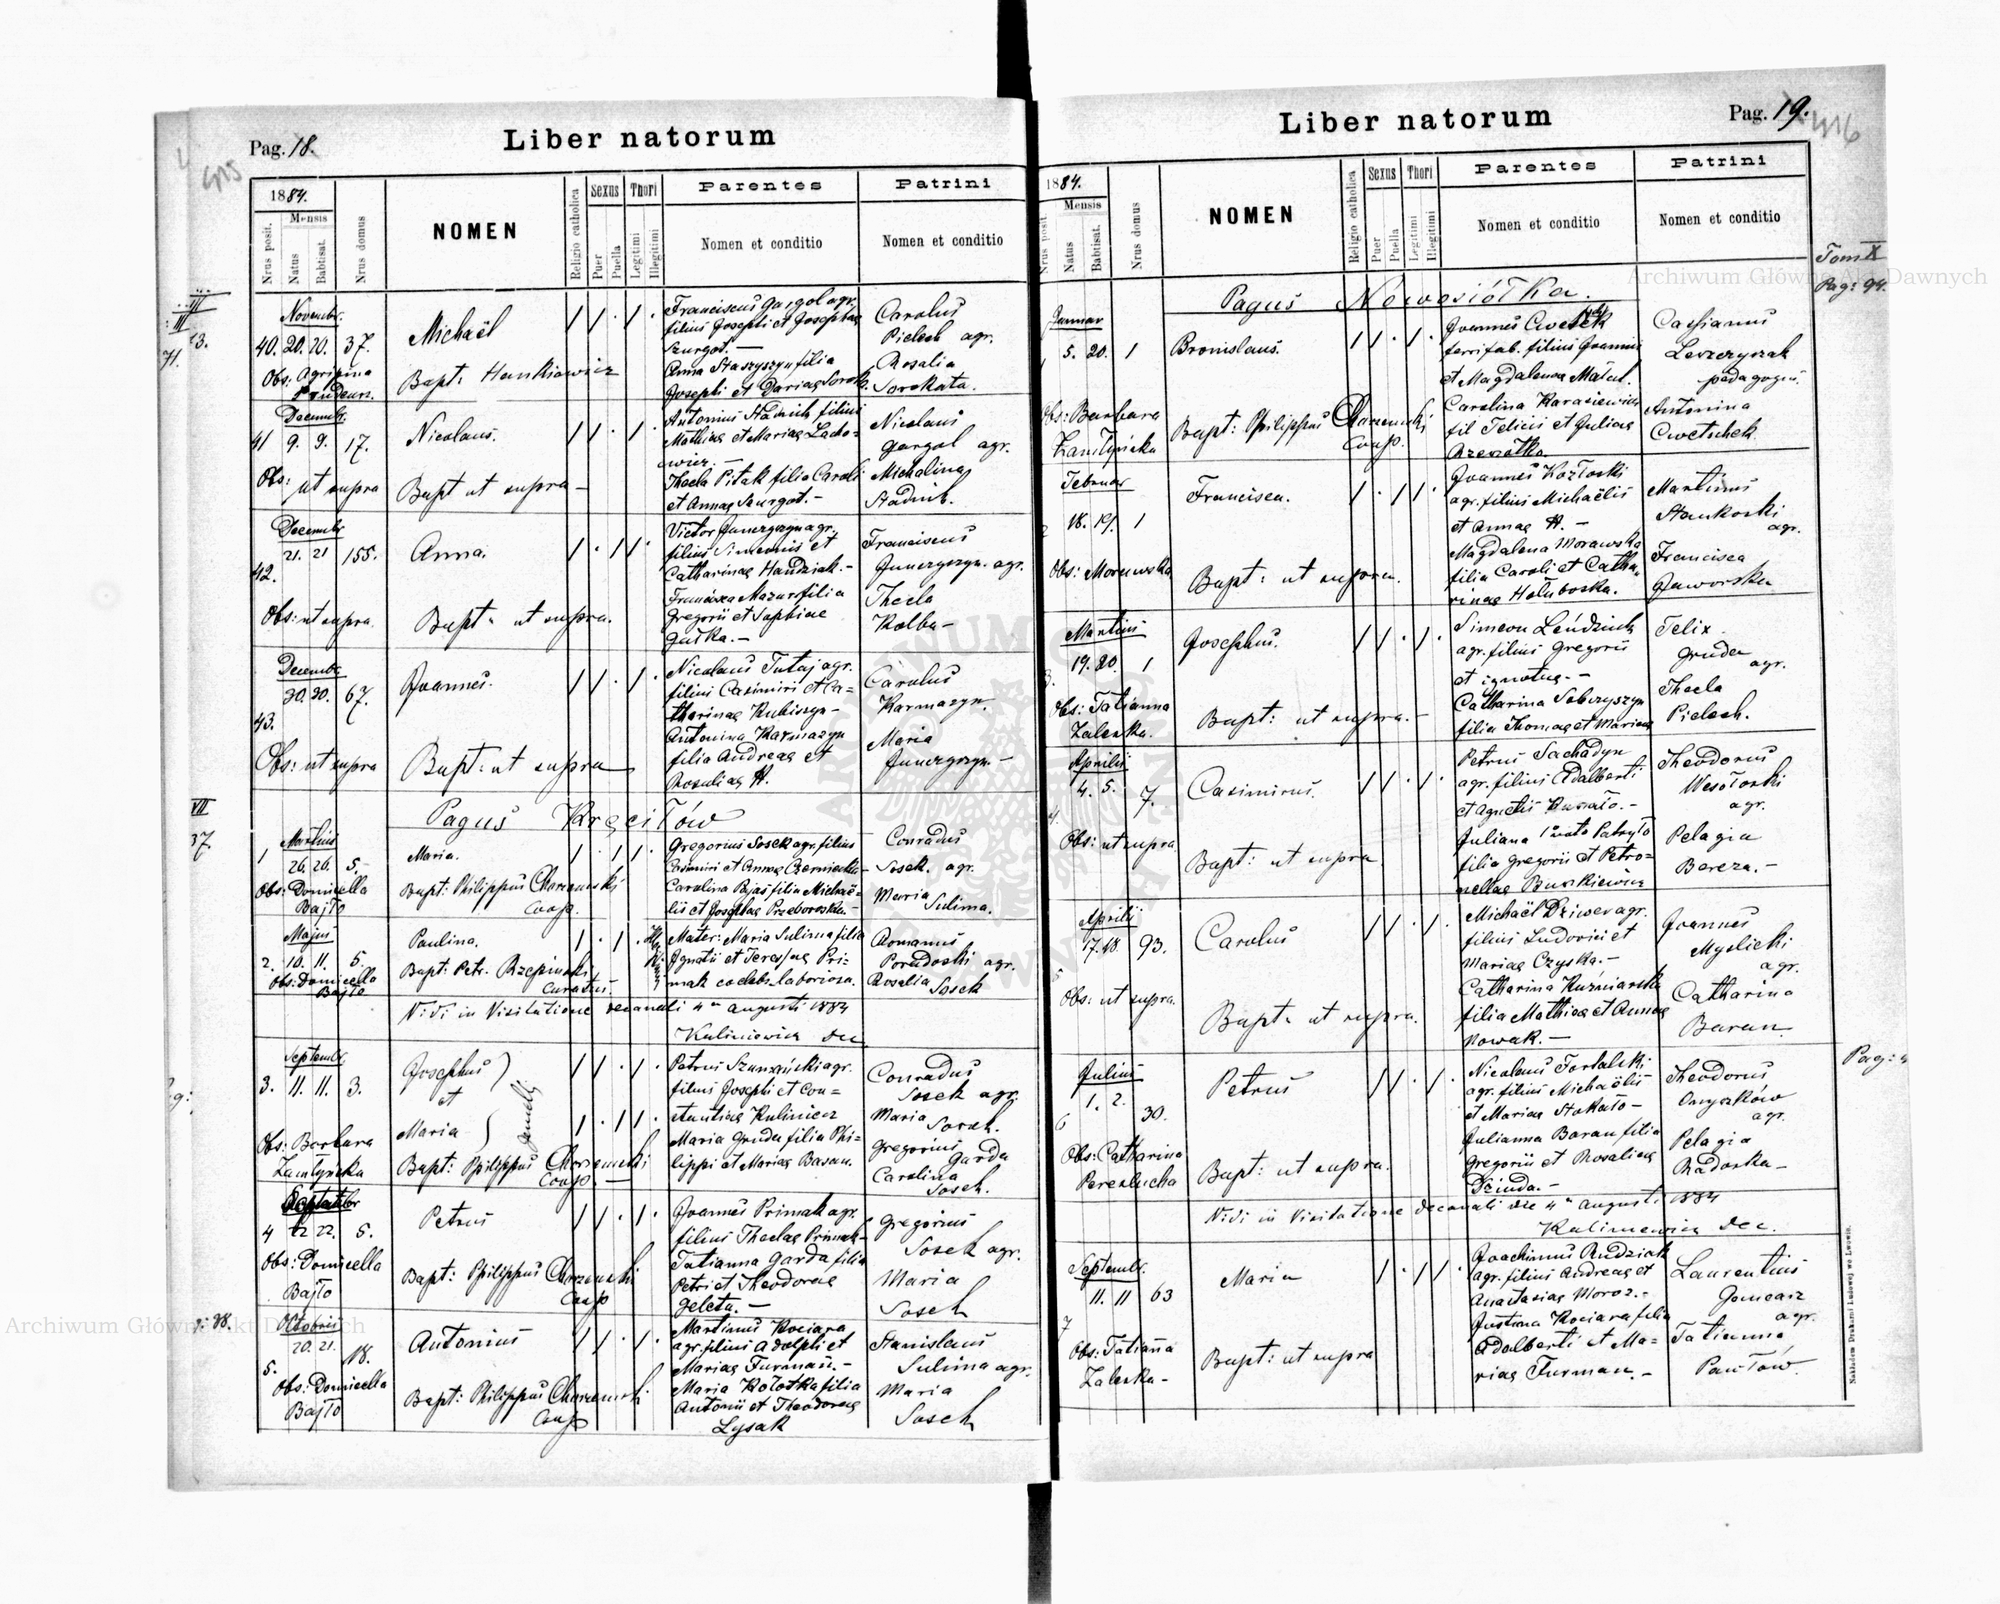 Pag. 18.
Liber natorum
1884.
Mensis
Nrus posit.
Natus
Babtisat.
Nrus domus
NOMEN
Religio catholica
Sexus
Puer
Puella
Thori
Legitimi
Illegitimi
Parentes
Nomen et conditio
Patrini
Nomen et conditio
Novembr.
40. 20. 20. 37.
Michaël
Franciscus Gargol agr.
filius Josephi et Josephae
Szurgot. —
Anna Staszyszyn filia
Josephi et Dariae Sorok.
Carolus
Pielech agr.
Rosalia
Sorokata.
Obs: Agripina
Bapt: Hankiewicz
Decembr.
41 9. 9. 17.
Nicolaus.
Antonius Stadnik filius
Mathiae et Mariae Lacho-
wicz. —
Thecla Pitak filia Caroli
et Annae Szurgot. —
Nicolaus
Gargol agr.
Michalina
Stadnik.
Obs: ut supra
Bapt ut supra —
Decembr
42. 21. 21 155.
Anna.
filius Simeonis et
Catharinae Handziak. —
Francisca Mazur filia
Gregorii et Sophiae
Gutka. —
Franciscus
Thecla
Kolba —
Obs: ut supra.
Bapt: ut supra.
Decembr
43. 30. 30. 67.
Joannes.
Nicolaus Tutaj agr.
filius Casimiri et Ca-
tharinae Kubiszyn —
Antonina Karmazyn
filia Andreae et
Rosaliae H.
Carolus
Karmazyn.
Maria
Obs: ut supra
Bapt: ut supra
VII
37.
Pagus Kręciłów
Martius
1 26. 26. 5.
Maria.
Gregorius Sosek agr. filius
Casimiri et Annae
Carolina Bajas filia Michaë-
lis et Josephae Przeborowska. —
Conradus
Sosek. agr.
Maria
Sulima.
Obs: Domicella
Bajło
Bapt: Philippus Charzewski
Coop.
Majus
2. 10. 11. 5.
Paulina.
Mater: Maria Sulima filia
Ignatii et Teresiae Pri-
mak coelebs laboriosa.
Romanus
Porudoski agr.
Rosalia
Sosek
Obs: Domicella
Bajło
Bapt: Petr. Rzepinski
Curatus.
Vidi in Visitatione decanali 4a augusti 1884
Kaliniewicz dec
Septembr.
3. 11. 11. 3.
Josephus
et
Maria
Gemelli
filius Josephi et Con-
stantiae Kulinicz
Maria Gruda filia Phi-
lippi et Mariae Basan.
Conradus
Sosek agr.
Maria Sosek.
Gregorius
Garda
Carolina
Sosek.
Obs: Barbara
Zamłynska
Bapt: Philippus Charzewski
Coop. —
4 22 22. 5.
Petrus
Joannes Primak agr.
filius Theclae Primak —
Tatianna Garda filia
Petri et Theodorae
Geleta. —
Gregorius
Sosek agr.
Maria
Sosek
Obs: Domicella
Bajło
Bapt: Philippus Charzewski
Coop
Octobris
5. 20. 21. 18.
Antonius
Martinus Kociara
agr. filius Adolphi et
Mariae Furman. —
Maria Kolotka filia
Antonii et Theodorae
Lysak
Stanislaus
Sulima agr.
Maria
Sosek
Obs: Domicella
Bajło
Bapt: Philippus Charzewski
Coop
Pag. 19.
416
Liber natorum
1884.
Mensis
Nrus posit.
Natus
Babtisat.
Nrus domus
NOMEN
Religio catholica
Sexus
Puer
Puella
Thori
Legitimi
Illegitimi
Parentes
Nomen et conditio
Patrini
Nomen et conditio
Tom X
Pag: 94.
Pagus Nowosiółka.
Januar
5. 20. 1
Bronislaus.
ferri fab. filius Joannis
et Magdalenae Matul.
Carolina Karasiewicz
fil Felicis et Juliae
Cassianus
Leszczyszak
pedagogus.
Antonina
Cwetschek.
Obs: Barbara
Zamłyńska
Bapt: Philippus Charzewski
Coop.
Februar
18. 19. 1
Francisca.
Joannes Kozłoski
agr. filius Michaëlis
et Annae H. —
Magdalena Morawska
filia Caroli et Catha-
rinae Hołuboska.
Martinus
Stankoski
agr.
Francisca
Jaworska
Obs: Morawska
Bapt: ut supra.
Martius
19. 20. 1
Josephus.
Simeon Leńdziuk
agr. filius Gregorii
et ignotae. —
Catharina Sobczyszyn
filia Thomae et Mariae
Felix
Gruda
agr.
Thecla
Pielech.
Obs: Tatianna
Zaleska.
Bapt: ut supra. —
Aprilis
4. 4. 5. 7.
Casimirus.
Petrus Sachadyn
agr. filius Adalberti
et Agnetis
Juliana
filia Gregorii et Petro-
nellae Burkiewicz
Theodorus
Wesołoski
agr.
Pelagia
Bereza. —
Obs: ut supra
Bapt: ut supra
Aprilis
5 17. 18. 93.
Carolus
Michaël Dziwer agr.
filius Ludovici et
Mariae Czyska. —
Catharina Kuźniarska
filia Mathiae et Annae
Nowak. —
Joannes
Myslicki
agr.
Catharina
Baran
Obs: ut supra.
Bapt: ut supra.
Julius
6 1. 2. 30.
Petrus
Nicolaus Tortalski
agr. filius Michaëlis
et Mariae Stokało —
Julianna Baran filia
Gregorii et Rosaliae
Dzinda. —
Theodorus
Onyszków
agr.
Pelagia
Radoska —
Obs: Catharina
Perezlucha
Bapt: ut supra.
Vidi in Visitatione decanali die 4a augusti 1884
Kaliniewicz Dec.
Septembr.
7 11. 11 63
Maria
Joachimus Rudziak
agr. filius Andreae et
Anastasiae Moroz. —
Justina Kociara filia
Adalberti et Ma-
riae Furman. —
Laurentius
Goncarz
agr.
Tatianna
Pawłów.
Obs: Tatianna
Zaleska —
Bapt: ut supra
Nakładem Drukarni Ludowej we Lwowie.
Archiwum Główne Akt Dawnych
Archiwum Główne Akt Dawnych